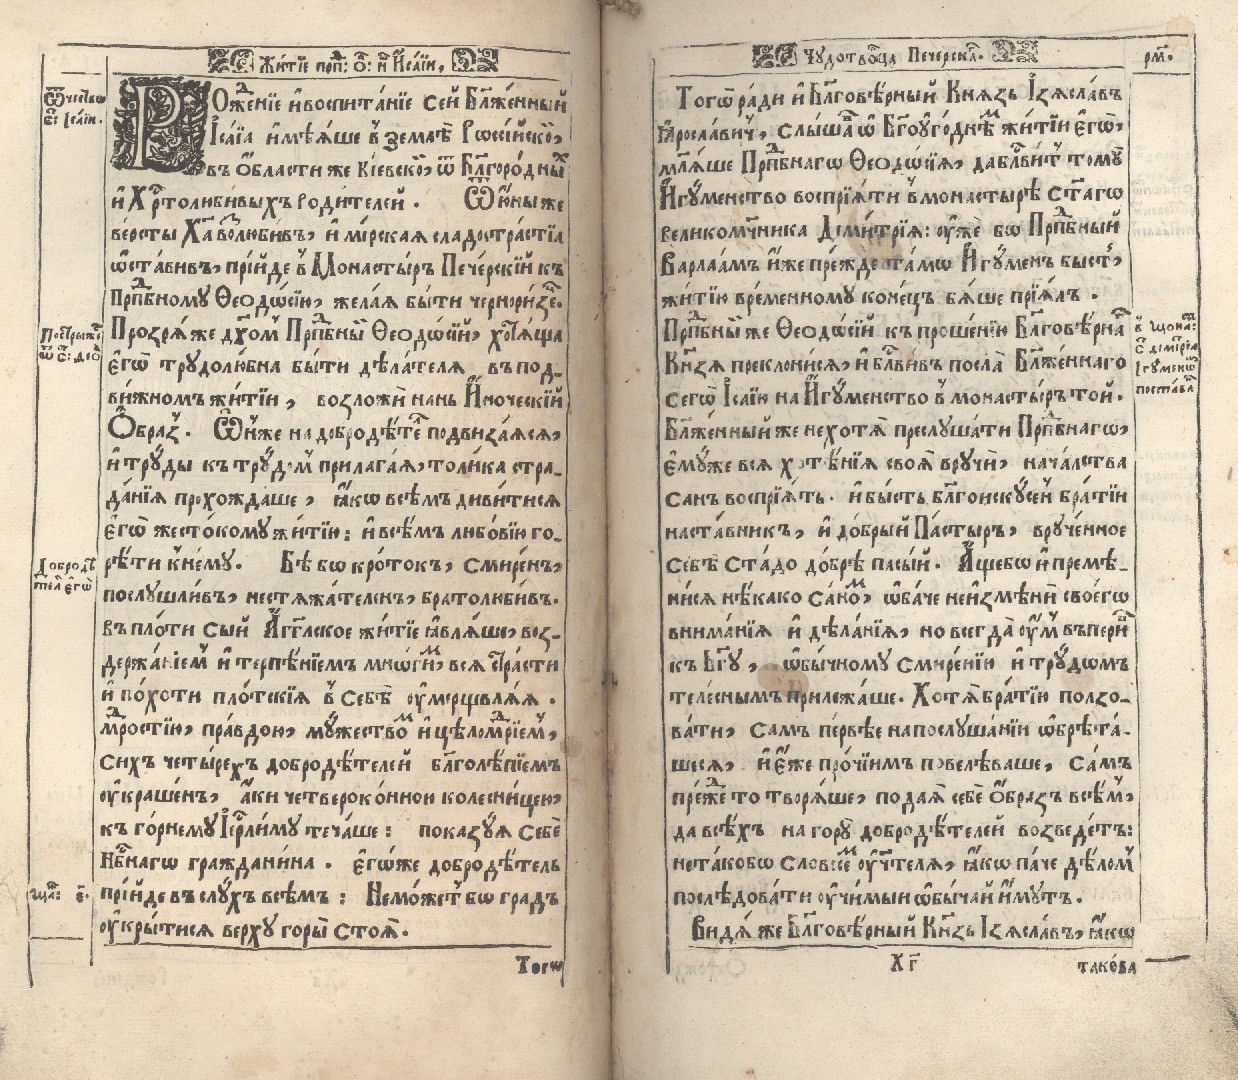 Житїе прпⷣ: ѻ҃: н҃ Исаїи,
Ѿчество
бл҃: Ісаїи.
РОжⷣенїе и҆воспита́нїе сей Бл҃же́нный
І҆са́їа и҆мѣѧ́ше в̾ землѣ̀ Рѡссі́йскоⷨ,
въ ѻ҆́бласти же Кі́евскоⷨ, ѿ Бл҃горо́дныⷯ
и҆ Хрⷭ҇толюби́выхъ роди́телей. Ѿ ю҆́ны же
ве́рсты Хаⷭ҇ возлюби́въ, и҆ мі́рская сладостра́стїа
ѡ҆ста́вивъ, прїи́де в̾ Монасты́ръ Пече́рскїй къ
Прпⷣбному Ѳеодо́сїю, жела́ѧ бы́ти черноризе́ⷰ.
Постриже́ⷩ
ѿ с҃: Ѳеоⷣ
Прозрѧ́ же дх҃омⸯ Прпⷣбныⷨ Ѳеодо́сїй, хотѧ́ща
є҆го̀ трудолю́бна бы́ти дѣ́лателѧ въ под-
ви́жномъ житїи, возложѝ нань И҆́ноческїй
Ѻ҆́браз̾. Ѿи҆́же на добродѣ́теⷧ подвиза́ѧсѧ,
и҆ труды̀ къ трудо́мⸯ прилага́ѧ, толи́ка стра-
да́нїѧ прохожда́ше, ꙗ҆́кѡ всѣ́мъ диви́тисѧ
є҆гѡ̀ жесто́кому житїю: и҆ всѣ́мъ любо́вїю го-
Добродѣ́
тель є҆гѡ̀
рѣ́ти к̾не́му. Бѣ̀ бѡ кро́токъ, смире́нъ,
послушли́въ, нестѧжа́теленъ, братолюби́въ.
въ пло́ти сый А҆́гг҃лское житїѐ ꙗ҆влѧ́ше, воз-
держа́нїемⸯ и҆ терпѣ́нїемъ мно́гиⷨ, всѧ стра́сти
и҆ по́хоти пло́тскїѧ в̾ себѣ̀ ѹ҆мерщвлѧ́ѧ.
мⷣростїю, пра́вдою, мꙋ́жествоⷨ и҆ цѣломⷣрїемⸯ,
сихъ четы́рехъ добродѣ́телей бл҃голѣ́пїемъ
ѹ҆кра́шенъ, а҆́ки четвероко́нною колесни́цею,
къ го́рнему Іе҆рⷭ҇ли́му теча́ше: показꙋ́ѧ себѐ
Нбⷭ҇нагѡ гражда́нина. є҆гѡ́же добродѣ́тель
Маⷴ: є҃.
прїи́де въ слꙋ́хъ всѣ́мъ: Не мо́жетⸯ бѡ градъ
ѹ҆кры́тисѧ верхꙋ горы̀ стоѧ̀.
Тогѡ
Чудотво́рца Пече́рскаⷢ.
рм҃.
Тогѡ̀ ра́ди и҆ Бл҃говѣ́рный Кнѧзь І҆зѧсла́въ
Ꙗ҆росла́вичⸯ, слы́шаⷡ ѡ҆ Бг҃оуго́днѣⷨ житїи є҆гѡ̀,
молѧ́ше Прпⷣбнаго Ѳеодо́сїѧ, да бл҃ви́тⸯ томꙋ̀
И҆гꙋ́менство воспрїѧ́ти в̾ монастырѣ̀ ст҃агѡ
великомч҃ника Дими́трїа: ѹ҆жѐ бо Прпⷣбный
Варлаа́мъ и҆́же пре́жде та́мѡ И҆гꙋ́менъ быстⸯ,
житїю вре́менному коне́цъ бѧ́ше прїѧ́лъ.
в̾ Мона:
с҃ Дими́трїа
І҆гꙋ́меноⷨ
поста́вле́ⷩ
Прпⷣбныⷨ же Ѳеодо́сїй къ проше́нїю Бл҃говѣ́рнаⷢ
Кнѧзѧ прекло́нисѧ, и҆ бл҃ви́въ посла̀ Бл҃же́ннаго
сегѡ̀ І҆са́їю на И҆гꙋ́менство в̾ монасты́ръ той.
Бл҃же́нный же не хотѧ̀ преслꙋ́шати Прпⷣбнагѡ,
є҆мꙋ́же всѧ хотѣ́нїѧ своѧ̀ врꙋчѝ, нача́лства
санъ воспрїѧ́тъ. и҆ бы́сть бл҃гоискꙋ́сеⷩ бра́тїи
наста́вникъ, и҆ до́брый Па́стыръ, врꙋче́нное
себѣ̀ ста́до до́брѣ пасы́й. А҆́ще бѡ и҆ премѣ-
ни́сѧ нѣ́како са́ноⷨ, ѡ҆ба́че не и҆змѣнѝ своегѡ̀
внима́нїѧ и҆ дѣ́ланїѧ, но всегда̀ ѹ҆́мⸯ въпери́ⷡ
къ Бг҃ꙋ, ѡ҆бы́чному смире́нїю и҆ трꙋдѡ́мъ
теле́снымъ прилежа́ше. Хотѧ́ бра́тїю по́лзо-
вати, самъ пе́рвѣе на послꙋша́нїи ѡ҆брѣта́-
шесѧ, и҆ є҆́же про́чїимъ повелѣва́ше, самъ
пре́жⷣе то творѧ́ше, подаѧ̀ себѐ ѻ҆́бразъ всѣ́мⸯ,
да всѣ́хъ на горꙋ̀ добродѣ́телей возведе́тъ:
не та́ко бѡ сло́всеⷨ ѹ҆чи́телѧ, ꙗ҆́кѡ па́че дѣ́ломⸯ
послѣ́довати ѹ҆чи́мыи ѡ҆бы́чай и҆́мꙋтъ.
Ви́дѧ же Бл҃говѣ́рный Кнѧ́зь І҆зѧсла́въ, ꙗ҆́кѡ
Хг҃
тако́ва